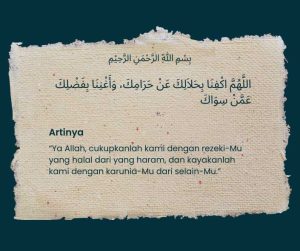 بِسْمِ اللَّهِ الرَّحْمَنِ الرَّحِيْمِ
اللَّهُمَّ اكْفِنَا بِحَلَالِكَ عَنْ حَرَامِكَ، وَأَغْنِنَا بِفَضْلِكَ
عَمَّنْ سِوَاكَ
Artinya
“Ya Allah, cukupkanlah kami dengan rezeki-Mu
yang halal dari yang haram, dan kayakanlah
kami dengan karunia-Mu dari selain-Mu.”